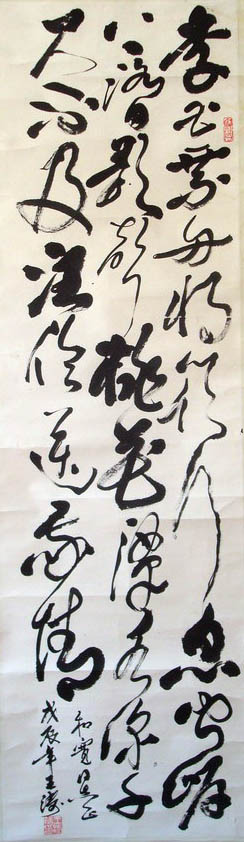 李白乘舟将欲行忽闻岸
上踏歌声桃花潭水深千
尺不及汪伦送我情
和寬正
戊辰年王